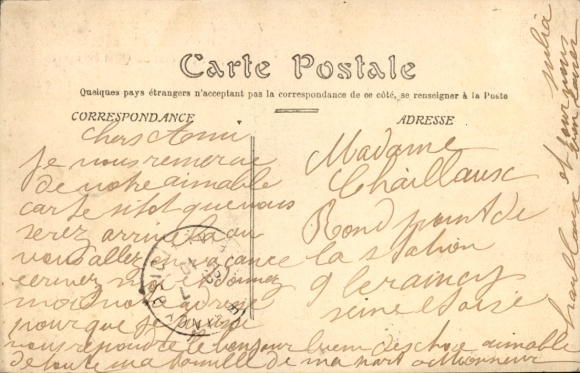 Carte Postale
Quelques pays étrangers n'acceptant pas la correspondance de ce côté, se renseigner à la Poste
CORRESPONDANCE
ADRESSE
chers Ami
je vous remercie
de votre aimable
carte sitot que vous
serez arrive
vous allez en vacance
donnez
moi votre adresse
pour que je
vous repondre le bonjour bien des chose aimable
de toute ma famille de ma part
Madame
Chaillaux
Rond point de
la station
seine et oise
julia
et pour